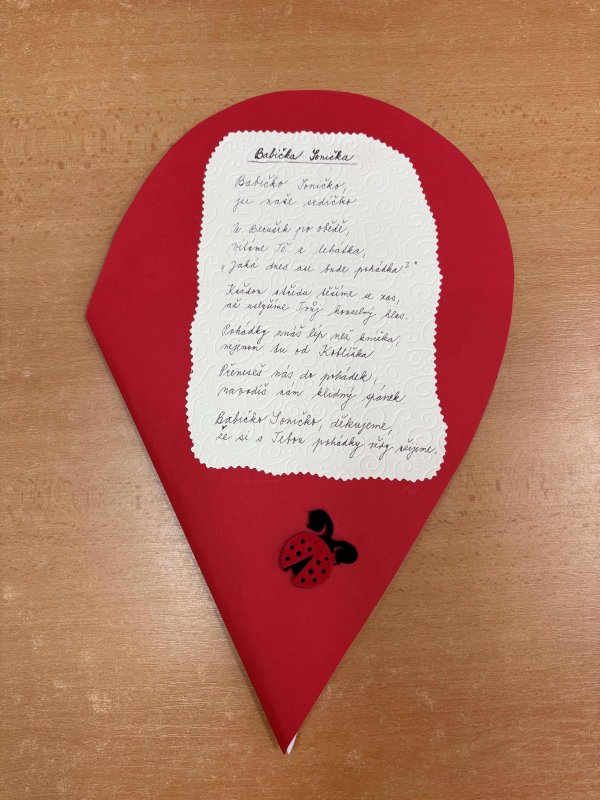 Babička Sonička
Babičko Soničko,
jsi naše srdíčko.
A Berušek po obědě,
vítáme Tě z lehátka.
„Jaká dnes asi bude pohádka?"
Každou středu těšíme se zas,
až uslyšíme Tvůj kouzelný hlas.
Pohádky znáš lép než knížka,
nejenom tu od Koblížka.
Přeneseš nás do pohádek,
navodíš nám klidný spánek
Babičko Soničko, děkujeme,
že se s Tebou pohádky vždy užijeme.